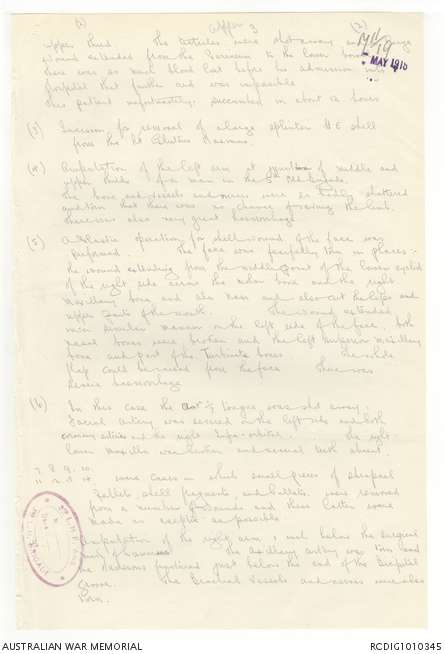 (2)
MAY 1916
upper third The testicles were shot away and
wound extended from the Perineum to the lower
there was so much blood lost before his admission into
Hospital that further aid was impossible
This patient unfortunately succumbed in about 12 hours
(3) Incision for removal of a large splinter H.E. shell
from the
(4) Amputation of the left arm at junction of middle and
upper thirds of a man in the Brigade.
The bone and vessels and nerves were so badly shattered
and torn that there was no chance of saving the limb.
There was also very great hemorrhage
(5) A Plastic operation for shell wound of the face was
performed. The face was fearfully torn in places:-
the wound extending from the middle point of the lower eyelid
of the right side across the malar bone and the right
maxillary bone, and also nose and also cut the lips and
upper parts of the mouth. The wound extended
in a similar manner on the left side of the face, both
nasal bones were broken and the left superior maxillary
bone and part of the Turbinate bones The whole
flap could be raised from the face There was
severe haemorrhage
(6) In this case the Ant ½ tongue was shot away.
Facial Artery was severed on the left side and both
coronary arteries and the right Infra-orbital. The right
lower Maxilla was broken and several teeth absent
7. 8. 9. 10.
11 12 13 14 some cases in which small pieces of shrapnel
Pellets, shell fragments and bullets were removed
from a number of wounds and these latter were
made as aseptic as possible
Amputation of the right arm 1 inch below the surgical
neck of humerus The Axillary artery was torn and
the Humerus fractured just below the end of the Bicipital
Groove. The Brachial vessels and nerves were also
torn.
AUSTRALIAN WAR MEMORIAL
RCDIG1010345